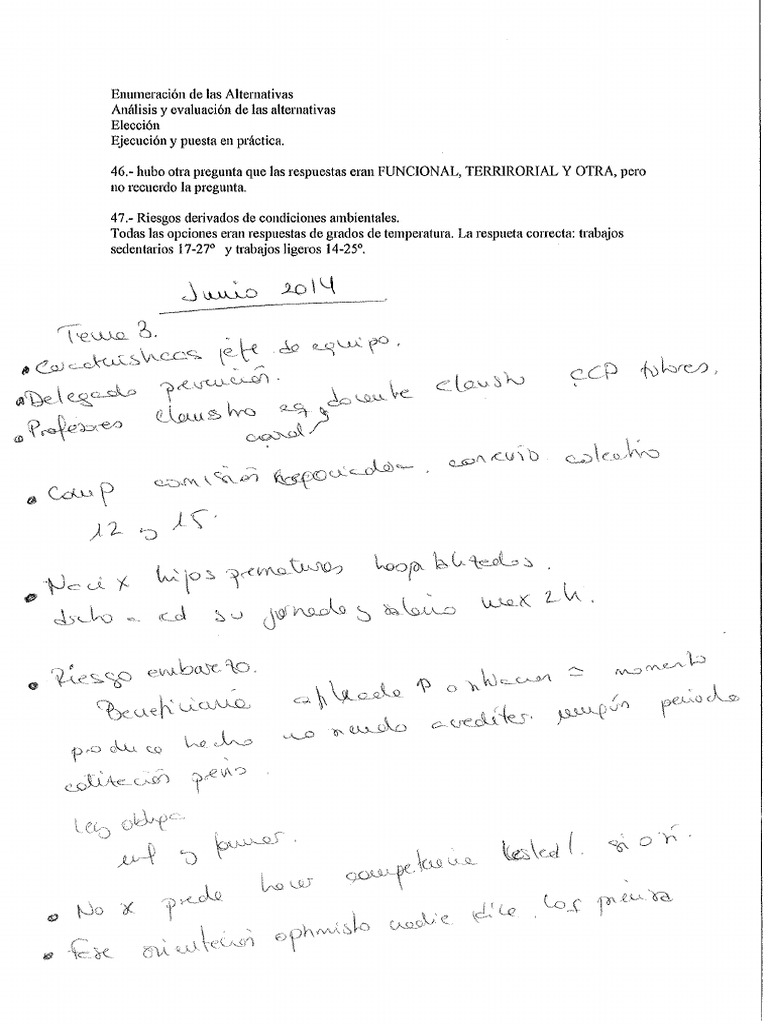 Enumeración de las Alternativas
Análisis y evaluación de las alternativas
Elección
Ejecución y puesta en práctica.
46.- hubo otra pregunta que las respuestas eran FUNCIONAL, TERRIRORIAL Y OTRA, pero
no recuerdo la pregunta.
47.- Riesgos derivados de condiciones ambientales.
Todas las opciones eran respuestas de grados de temperatura. La respueta correcta: trabajos
sedentarios 17-27º y trabajos ligeros 14-25º.
Junio 2014
Tema 3.
• Características jefe de equipo.
• Delegado prevención.
• Profesores claustro eq docente claustro CCP tutores.
• Comp comisión negociadora. convenio colectivo
12 y 15.
• Naci x hijos prematuros hospitalizados.
dscho a su jornada y salario max 2h.
• Riesgo embarazo.
Beneficiaria momento
produce hecho no siendo acreditar ningún periodo
cotización previo.
Ley
enf y
• No x puede hacer competencia si o sí.
• Fase orientación optimista nadie dice los piensa